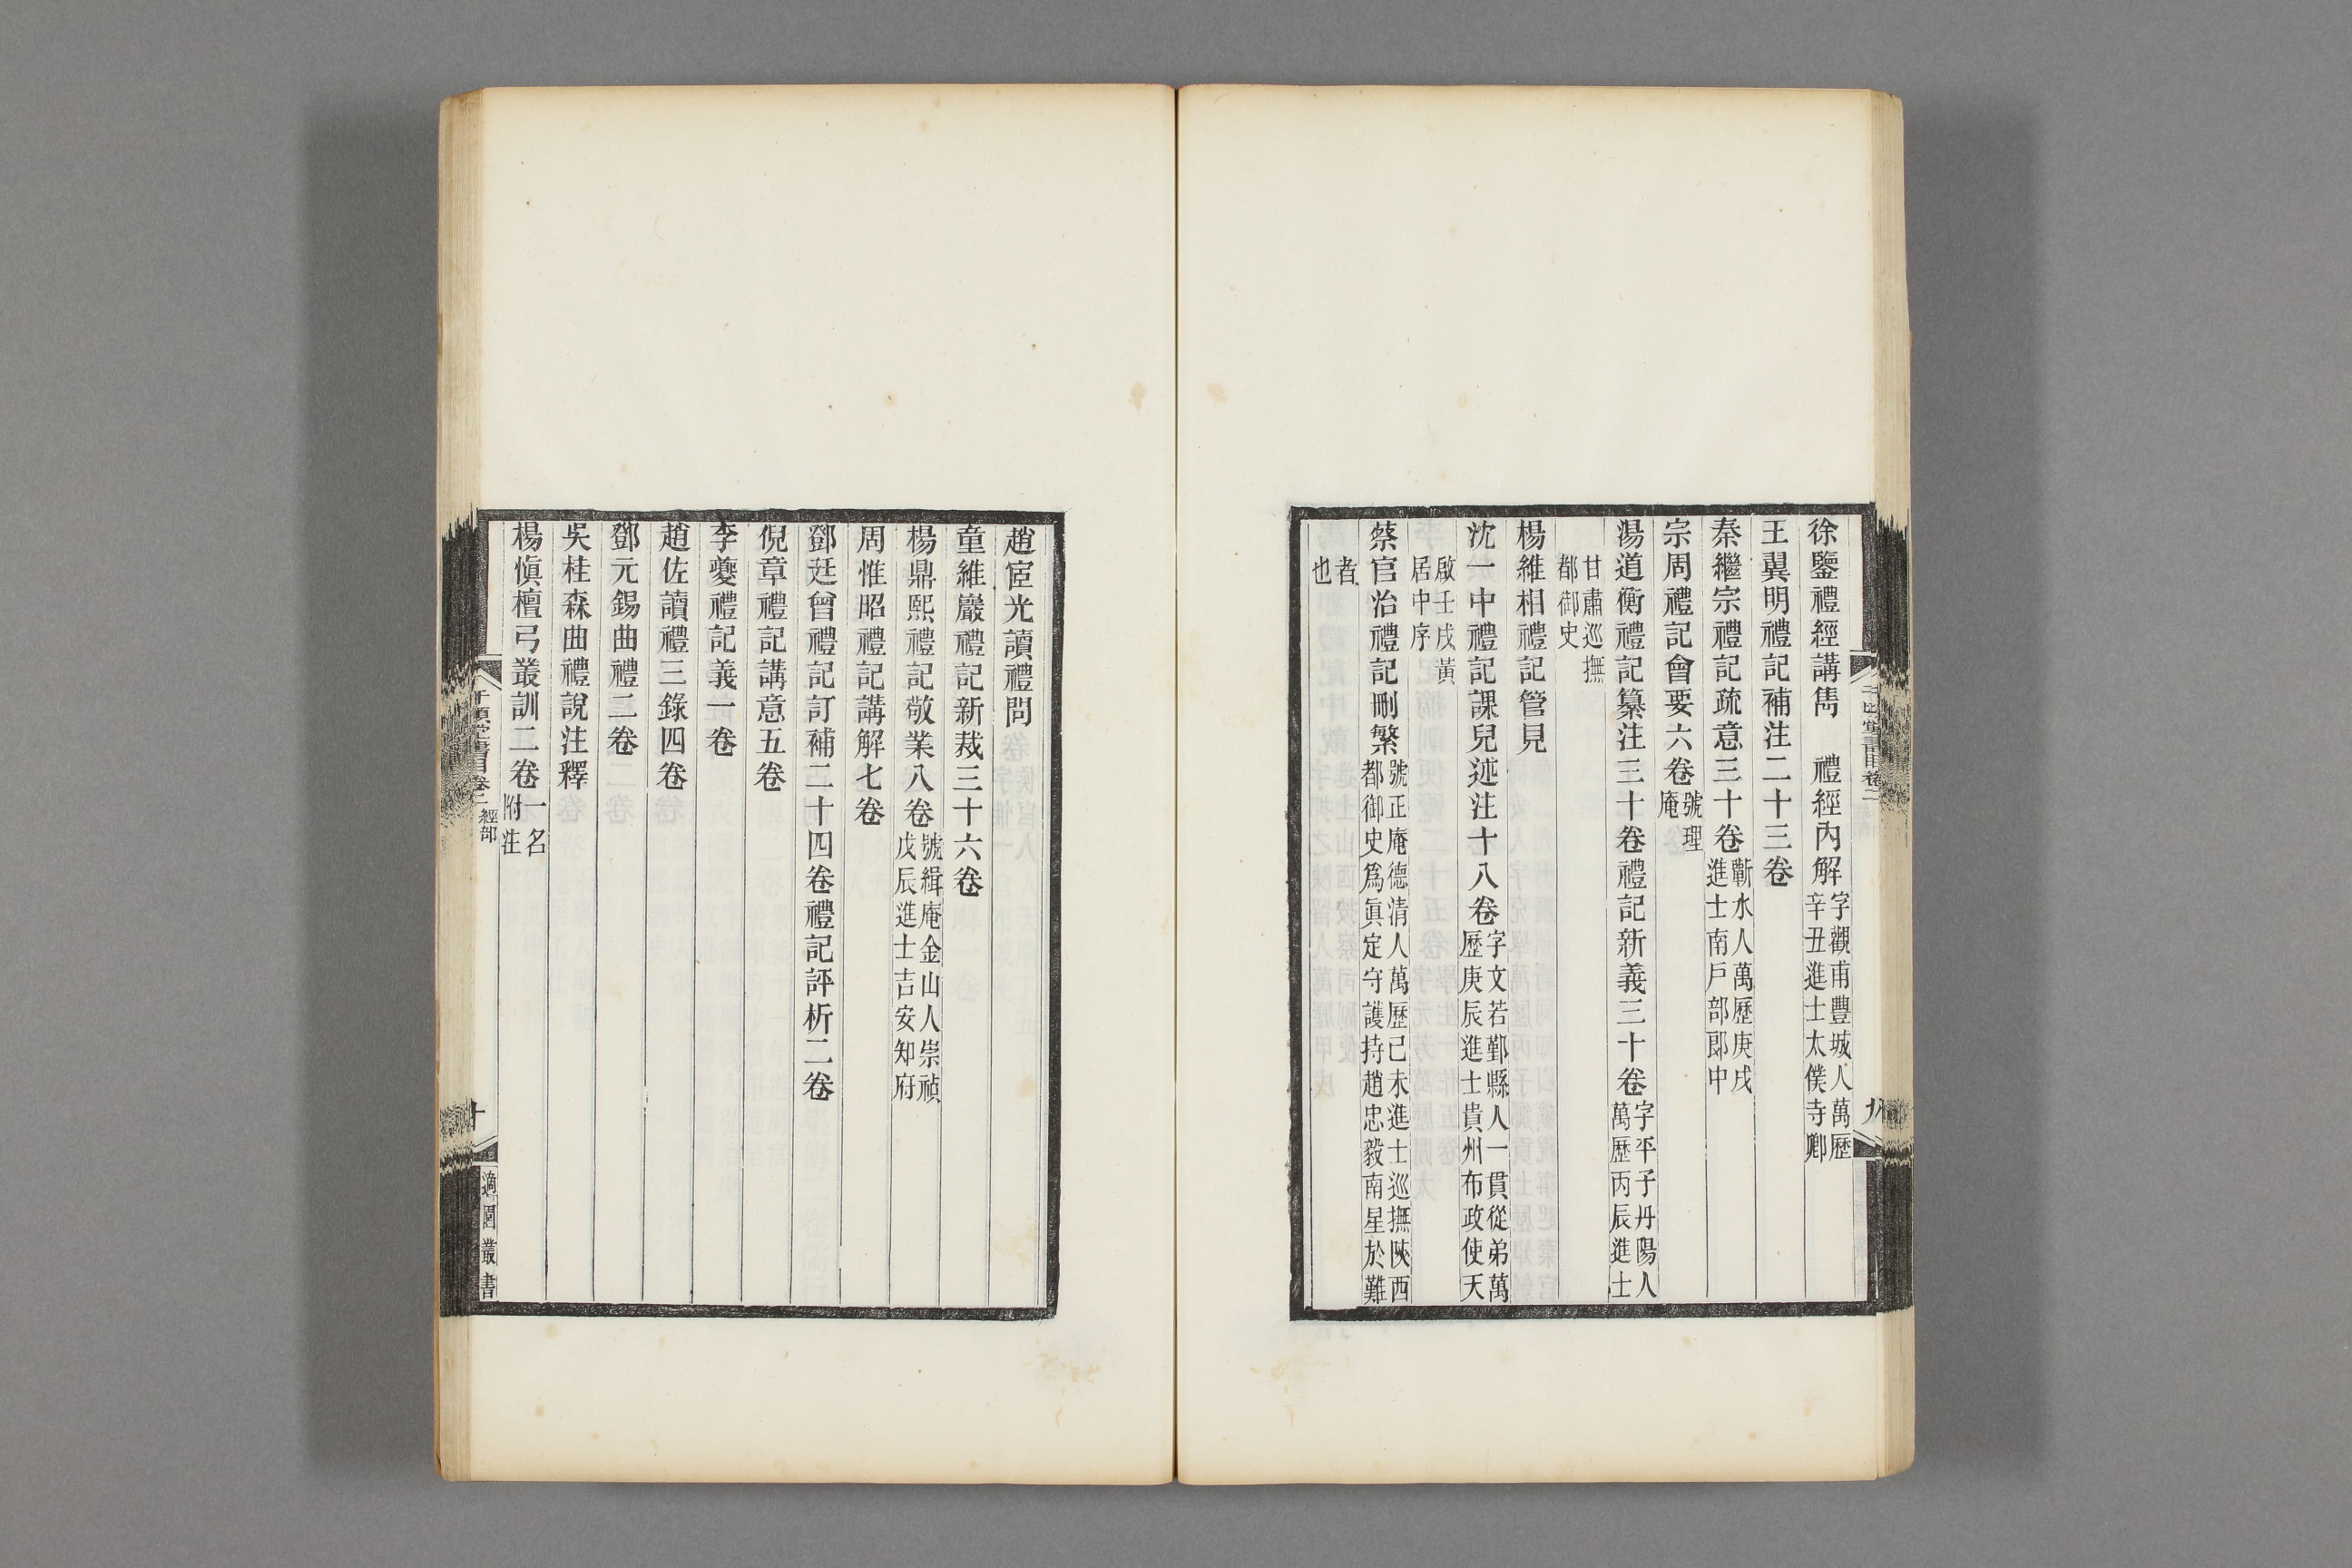 徐鑒禮經講雋　禮經內解字觀甫豐城人萬歷辛丑進士太僕寺卿
王翼明禮記補注二十三卷
秦繼宗禮記疏意三十卷蘄水人萬歷庚戌進士南戶部郎中
宗周禮記會要六卷號理庵
湯道衡禮記纂注三十卷禮記新義三十卷字平子丹陽人萬歷丙辰進士
甘肅巡撫都御史
楊維相禮記管見
沈一中禮記課兒述注十八卷字文若鄞縣人一貫從弟萬歷庚辰進士貴州布政使天
啟壬戌黃居中序
蔡官治禮記刪繁號正庵德清人萬歷己未進士巡撫陝西都御史爲眞定守護持趙忠毅南星於難
者也
九
趙宧光讀禮問
童維巖禮記新裁三十六卷
楊鼎熙禮記敬業八卷號緝庵金山人崇禎戊辰進士吉安知府
周惟昭禮記講解七卷
鄧廷曾禮記訂補二十四卷禮記評析二卷
倪章禮記講意五卷
李夔禮記義一卷
趙佐讀禮三錄四卷
鄧元錫曲禮二卷
吳桂森曲禮說注釋
楊愼檀弓叢訓二卷一名附注
千頃堂書目卷二 經部
十
適園叢書